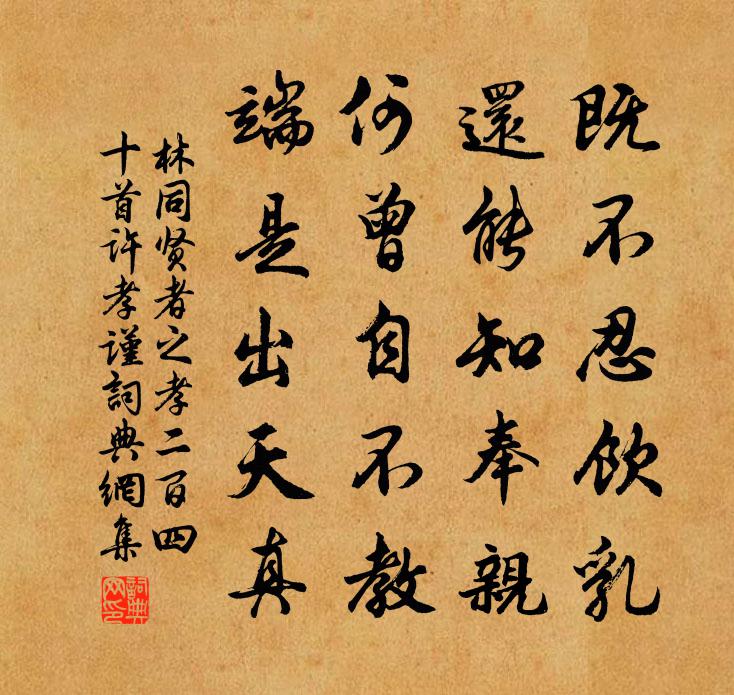 既不忍飲乳
還能知奉親
何曾自不教
端是出天真
林同贤者之孝二百四
十首许孝謹詞典網集
詞典網印